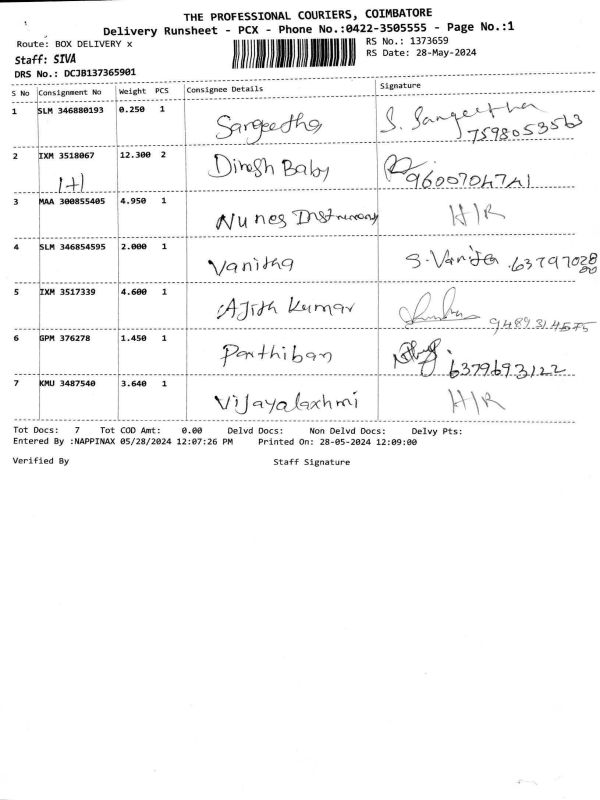 THE PROFESSIONAL COURIERS, COIMBATORE
Delivery Runsheet - PCX - Phone No.:0422-3505555 - Page No.:1
Route: BOX DELIVERY x
RS No.: 1373659
Staff: SIVA
RS Date: 28-May-2024
DRS No.: DCJB137365901
S No Consignment No Weight PCS Consignee Details Signature
1 SLM 346880193 0.250 1 Sangeetha S. Sangeetha
7598053563
2 IXM 3518067 12.300 2 Dinesh Baby 9600704741
1+1
3 MAA 300855405 4.950 1 Nunes H/R
4 SLM 346854595 2.000 1 Vanitha S. Vanitha 63797028
80
5 IXM 3517339 4.600 1 Ajith Kumar
9489314575
6 GPM 376278 1.450 1 Parthiban
6379693122
7 KMU 3487540 3.640 1 Vijayalaxhmi H/R
Tot Docs: 7 Tot COD Amt: 0.00 Delvd Docs: Non Delvd Docs: Delvy Pts:
Entered By :NAPPINAX 05/28/2024 12:07:26 PM Printed On: 28-05-2024 12:09:00
Verified By Staff Signature